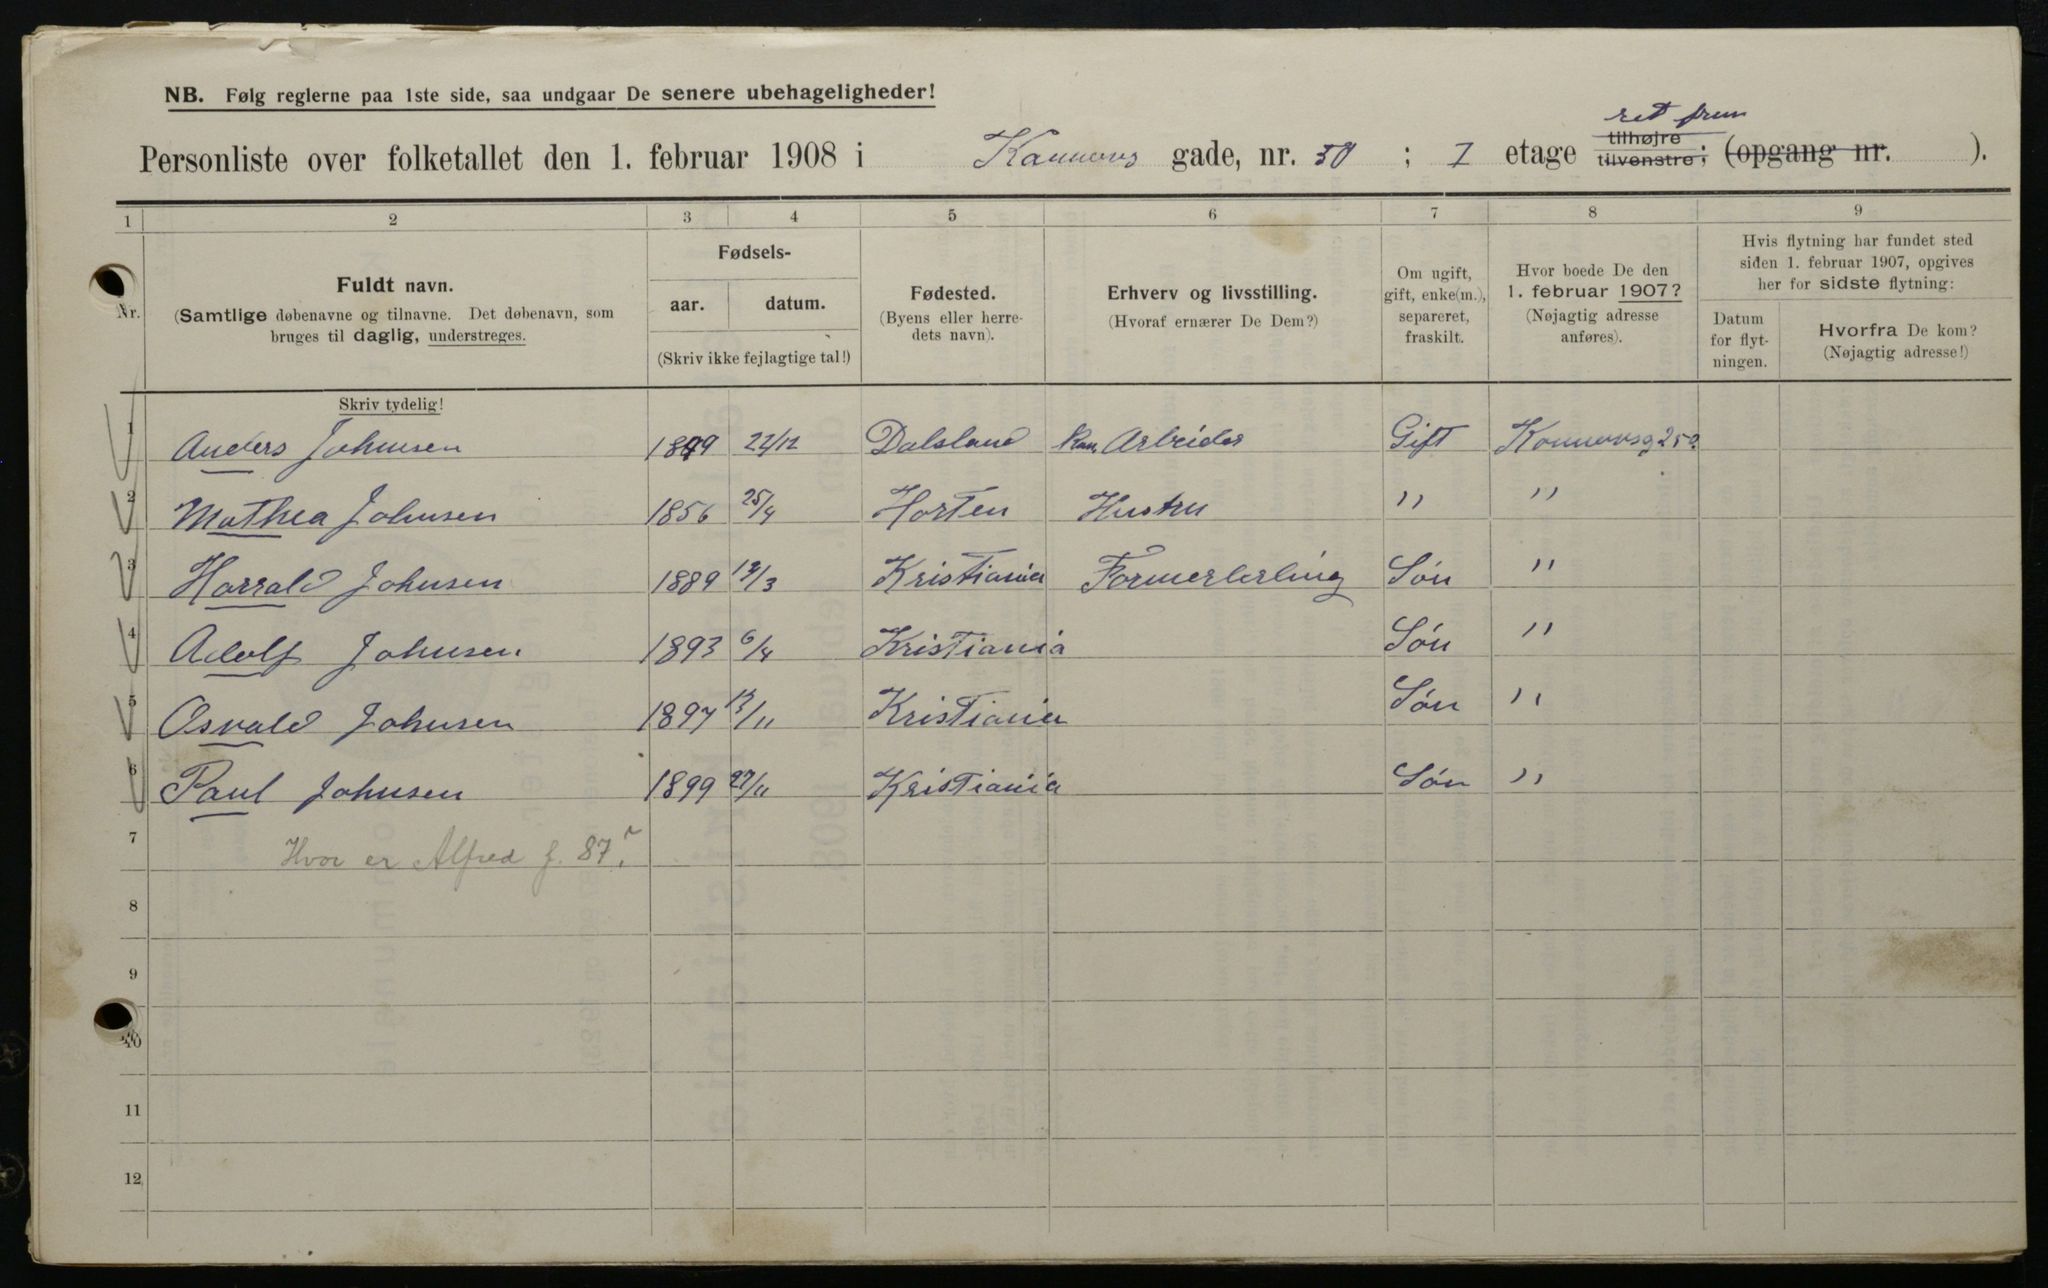 NB. Følg reglerne paa 1ste side, saa undgaar De senere ubehageligheder!
ret frem
Personliste over folketallet den 1. februar 1908 i Kannovs gade, nr. 30; I etage tilhøjre tilvenstre; (opgang nr. ).
1 2 3 4 5 6 7 8 9
Nr.
Fuldt navn.
(Samtlige døbenavne og tilnavne. Det døbenavn, som
bruges til daglig, understreges.
Skriv tydelig!
Fødsels-
aar. datum.
(Skriv ikke fejlagtige tal!)
Fødested.
(Byens eller herre-
dets navn).
Erhverv og livsstilling.
(Hvoraf ernærer De Dem?)
Om ugift,
gift, enke(m.),
separeret,
fraskilt.
Hvor boede De den
1. februar 1907?
(Nøjagtig adresse
anføres).
Hvis flytning har fundet sted
siden 1. februar 1907, opgives
her for sidste flytning:
Datum
for flyt-
ningen.
Hvorfra De kom?
(Nøjagtig adresse!)
1 Anders Johnsen 1849 22/12 Dalsland Kom. Arbeider Gift Konnovsg 25
2 Mathea Johnsen 1856 25/4 Horten Hustru " "
3 Harrald Johnsen 1889 /3 Kristiania Formerlerling Søn "
4 Adolf Johnsen 1893 6/4 Kristiania Søn "
5 Osvald Johnsen 1897 13/11 Kristiania Søn "
6 Paul Johnsen 1899 27/11 Kristiania Søn "
7 Hvor er Alfred f. 87?
8
9
10
11
12